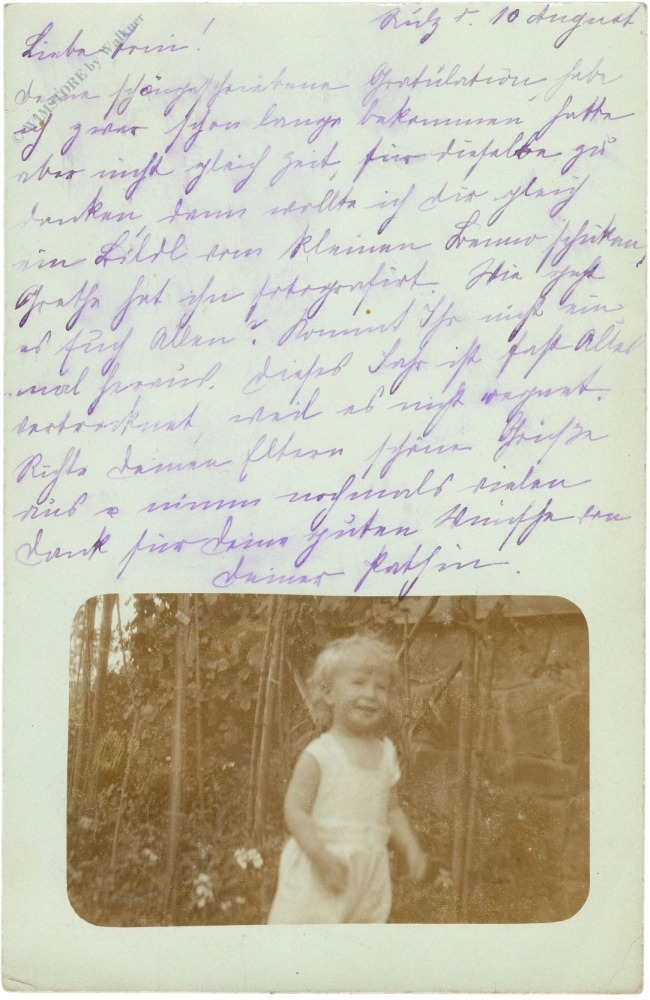 Sulz d. 10 August.
Liebe Erni!
Deine schöngeschriebene Gratulation habe
ich zwar schon lange bekommen hatte
aber nicht gleich Zeit, für dieselbe zu
danken, dann wollte ich dir gleich
ein Bildl vom kleinen Benno schicken,
Grethe hat ihn fotografirt. Wie geht
es Euch Allen? Kommt Ihr nicht ein
mal heraus. Dieses Jahr ist fast Alles
vertrocknet weil es nicht regnet.
Richte Deinen Eltern schöne Grüße
aus u nimm nochmals vielen
Dank für Deine guten Wünsche von
Deiner Pathin.
© WAMSTORE by Walkner